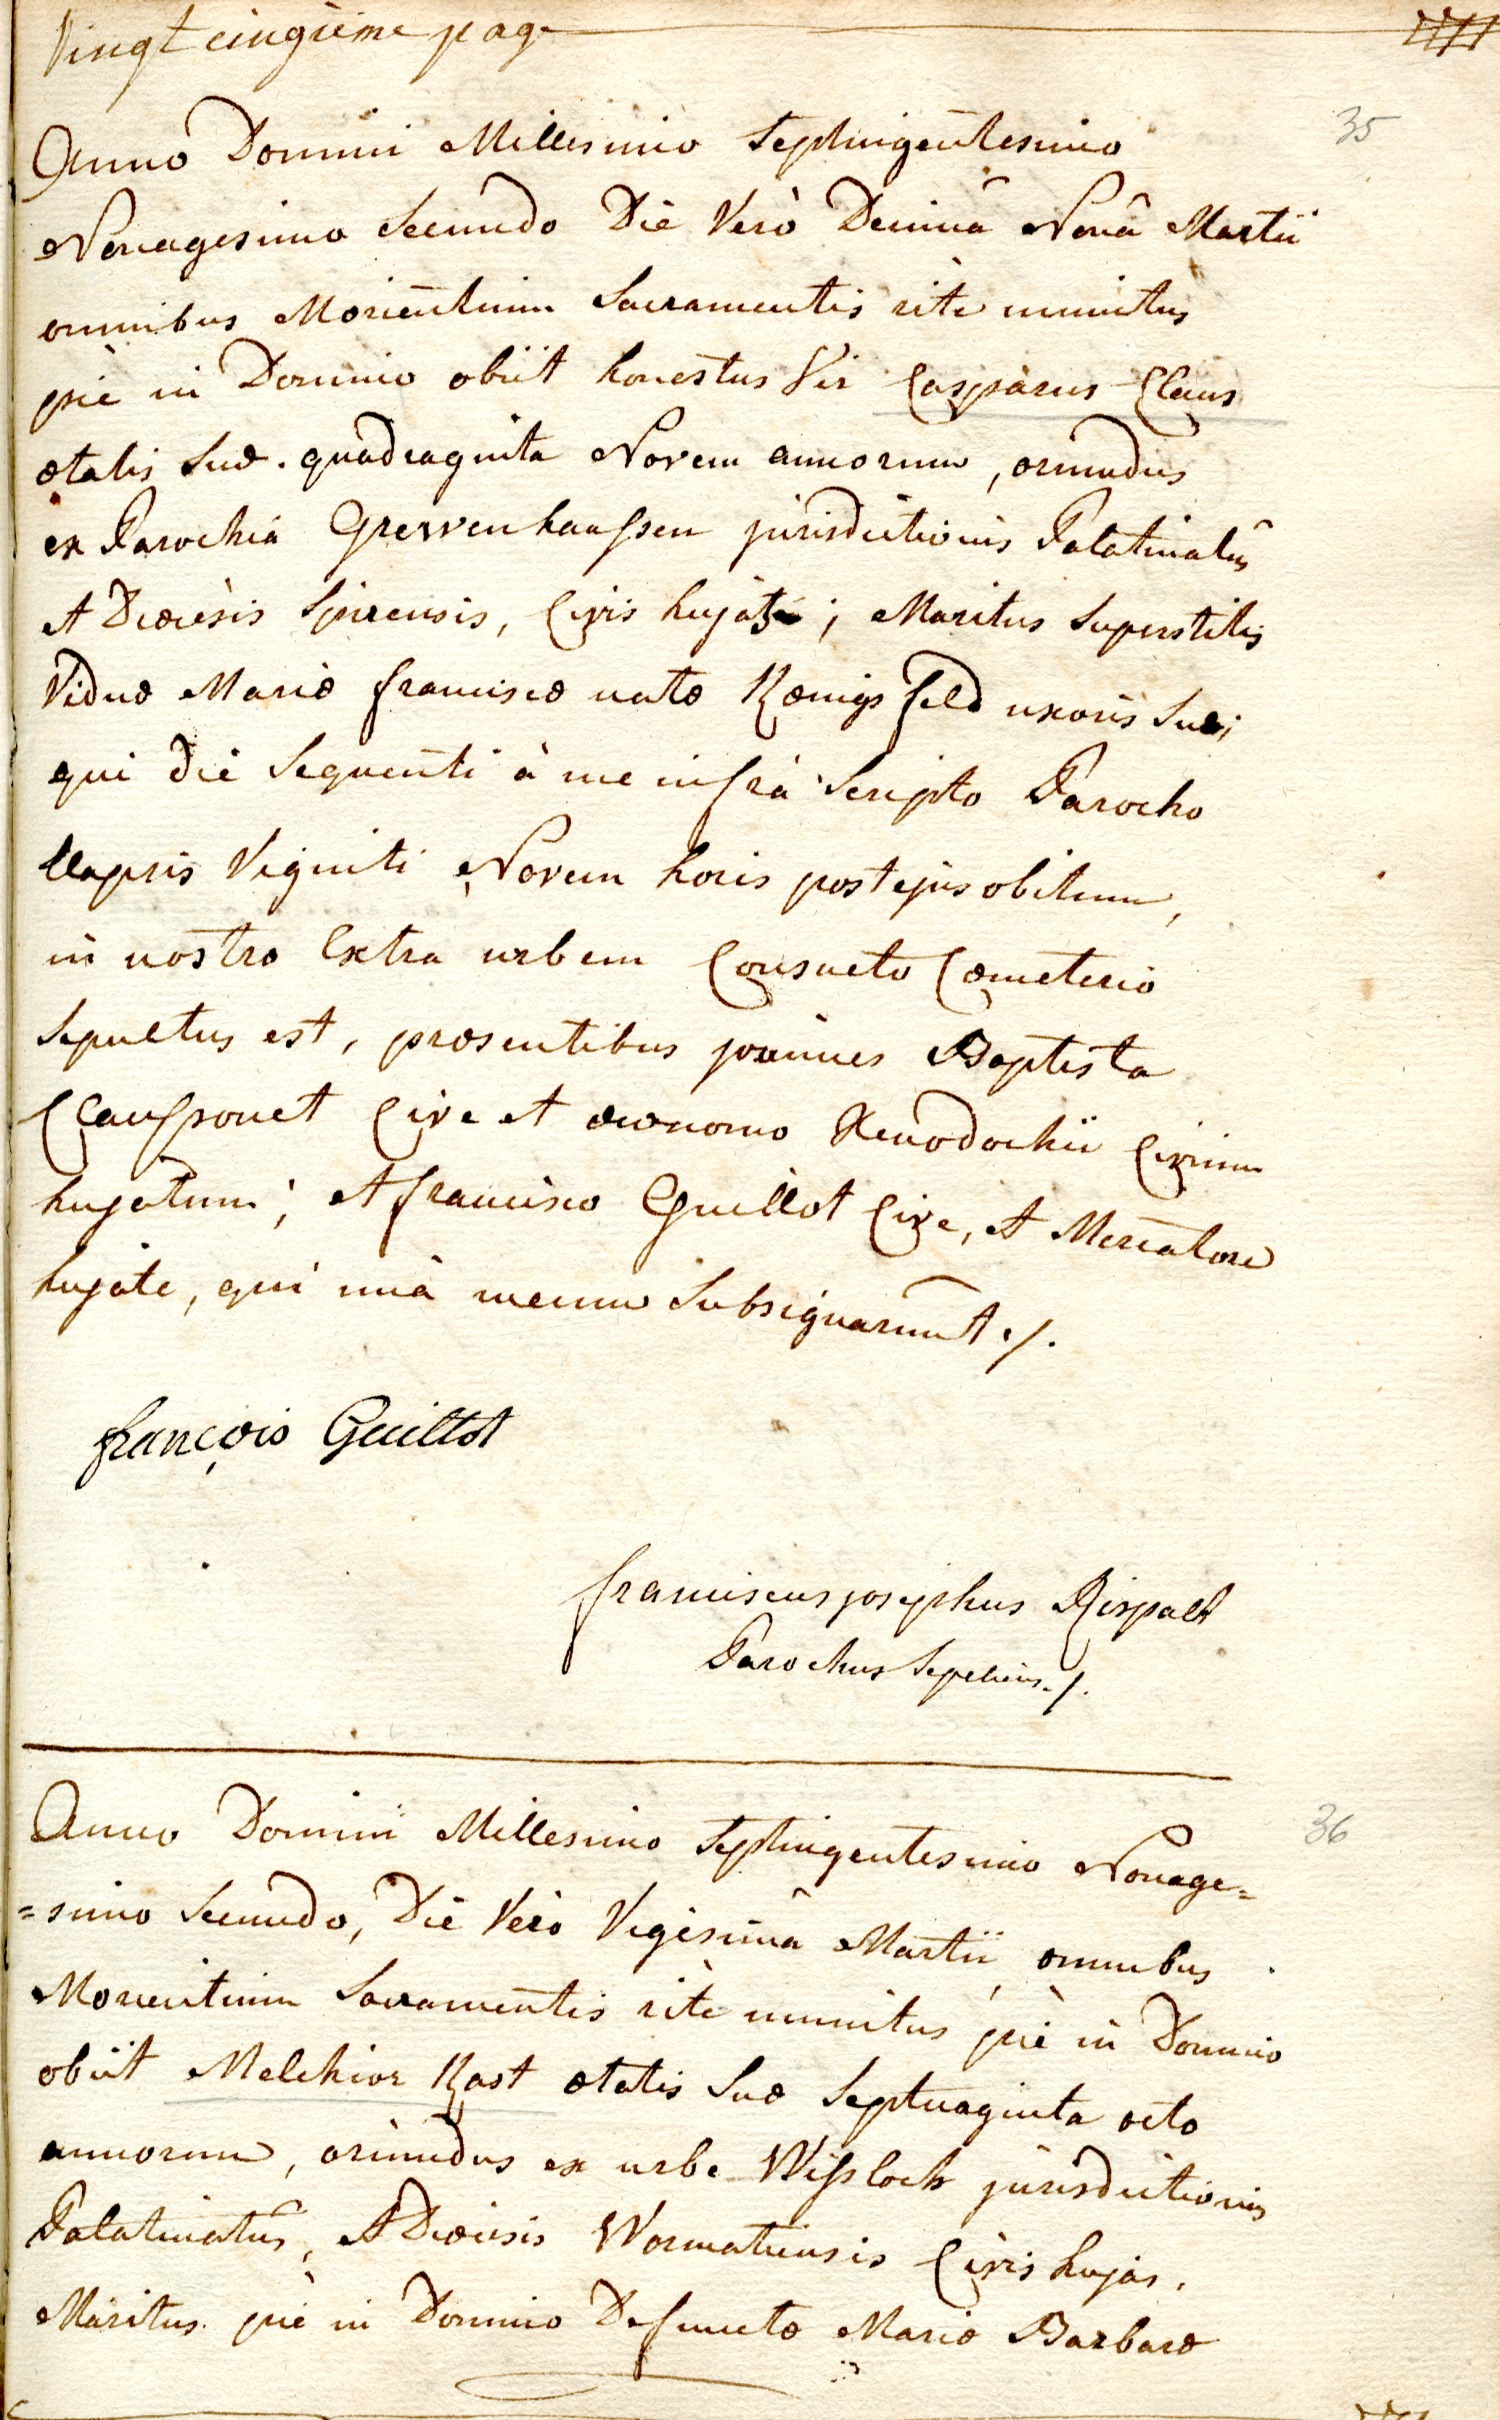 Vingt cinqieme page
35
Anno Domini Millesimo Septingentesimo
Nonagesimo Secundo Die Verò Decimâ Nonâ Martii
omnibus Morientium Sacramentis rite munitus
piè in Domino obiit honestus Vir Casparus Claus
ætatis suæ. quadraginta Novem annorum, oriundus
ex Parochiâ Grewenhaussen jurisdictionis Palatinatûs
et Diœcesis Spirensis, Civis hujas; Maritus Superstitis
Viduæ Mariæ franciscæ natæ Kœnigsfeld uxoris suæ;
qui diè Sequenti à me infrà Scripto Parocho
Elapsis Viginti Novem horis post ejus obitum,
in nostro Extra urbem Consueto Cœmeterio
Sepultus est, præsentibus joannes Baptista
Claussonet Cive et œconomo Xenodochii Civium
hujatum; et francisco Guillot Cive, et Mercatore
hujate, qui unà mecum Subsignarunt ./.
françois Guillot
franciscus josephus Rispalt
Parochus Sepeliens ./.
36
Anno Domini Millesimo Septingentesimo Nonage=
=simo Secundo, Diè Verò Vigesimâ Martii omnibus
Morientium Sacramentis ritè munitus piè in Domino
obiit Melchior Kast ætatis Suæ Septuaginta octo
annorum, oriundus ex urbe Wissloch jurisdictionis
Palatinatûs, et Diœcesis Wormatiensis Civis hujas.
Maritus piè in Domino Defunctæ Mariæ Barbaræ